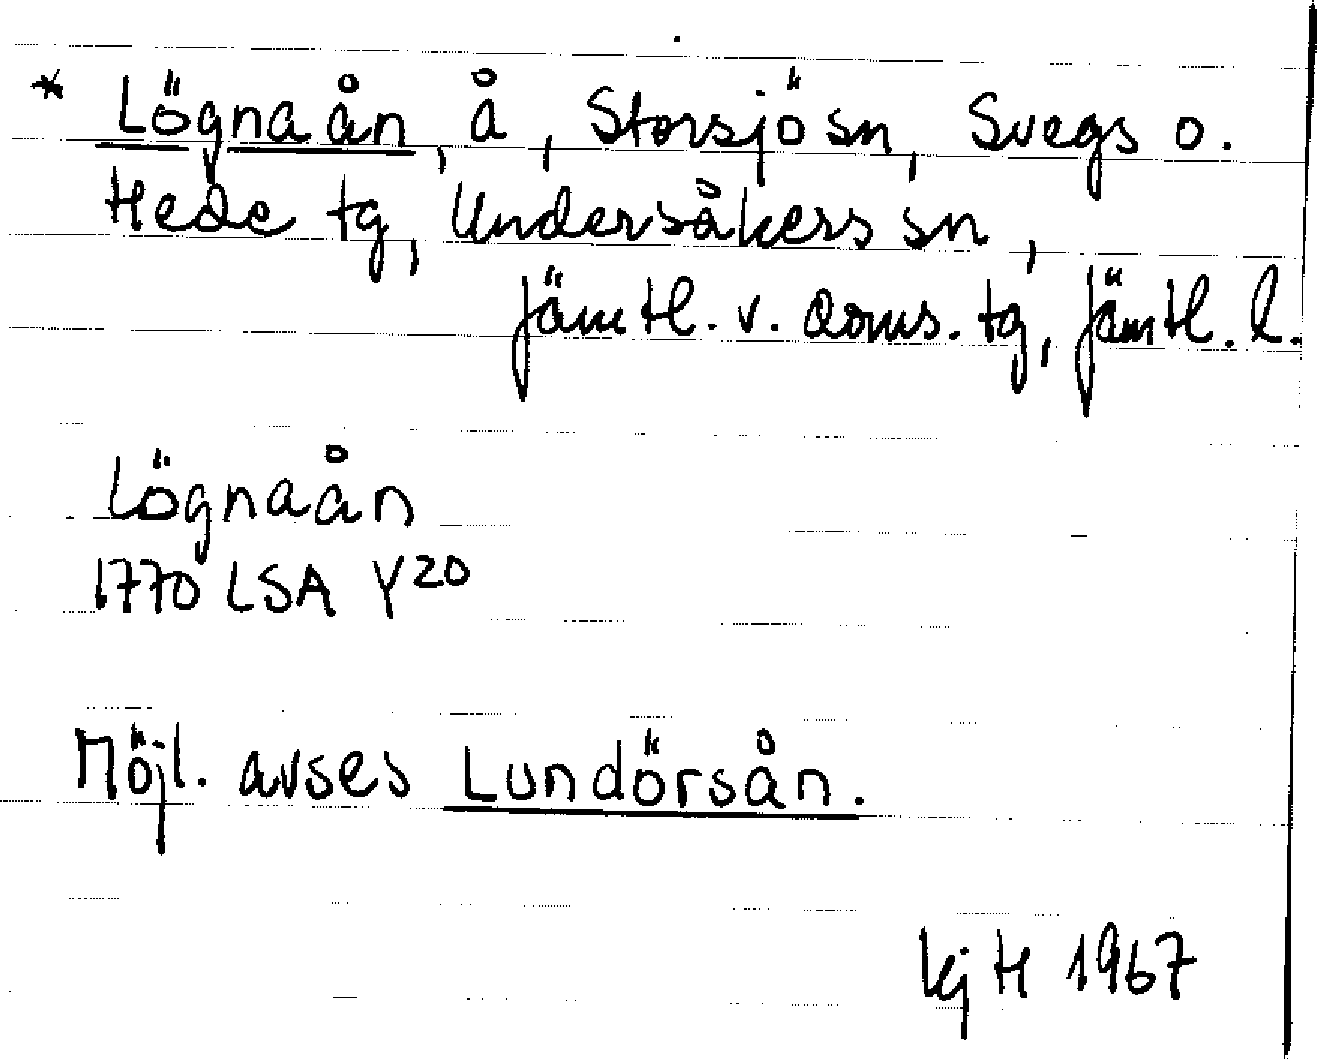 * Lögnaån, å, Storsjö sn, Svegs o.
Hede tg, Undersåkers sn,
Jämtl. v. doms. tg, Jämtl. l.
Lögnaån
1770 LSA Y20
Möjl. avses Lundörsån.
kj H 1967